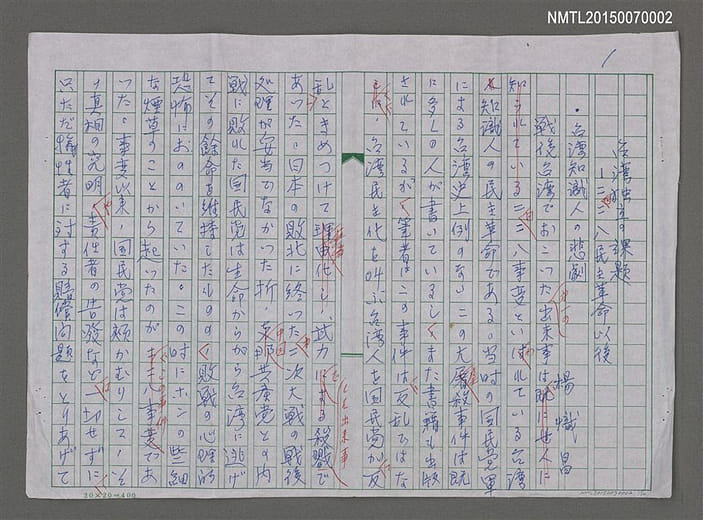 NMTL20150070002
台湾独立の課題
―二二八民主革命以後
楊熾昌
・台湾知識人の悲劇
戦後台湾でおこった出来事は既に世人に
知られている二二八事変といはれている台湾
知識人の民主革命である。当時の国民党軍
による台湾史上例のない、この大屠殺事件は既
に多くの人が書いているし、また書籍も出版
されているが、筆者はこの事件は反乱ではな
台湾民主化を叫ぶ台湾人を国民党が反
乱ときめつけて理由化し、武力による殺戮で
あった。日本の敗北に終った次大戦の戦後
処理が妥当でなかった折、共産党との内
戦に敗れた国民党は生命からがら台湾に逃げ
てその余命を維持したものの、敗戦の心理的
恐怖におののいていた。この時にホンの些細
な煙草のことから起ったのが事変であ
った。事変以来、国民党は頬かむりして、そ
の真相の究明、責任者の告発など一切せずに
只ただ犠牲者に対する賠償問題をとりあげて
20×20=400